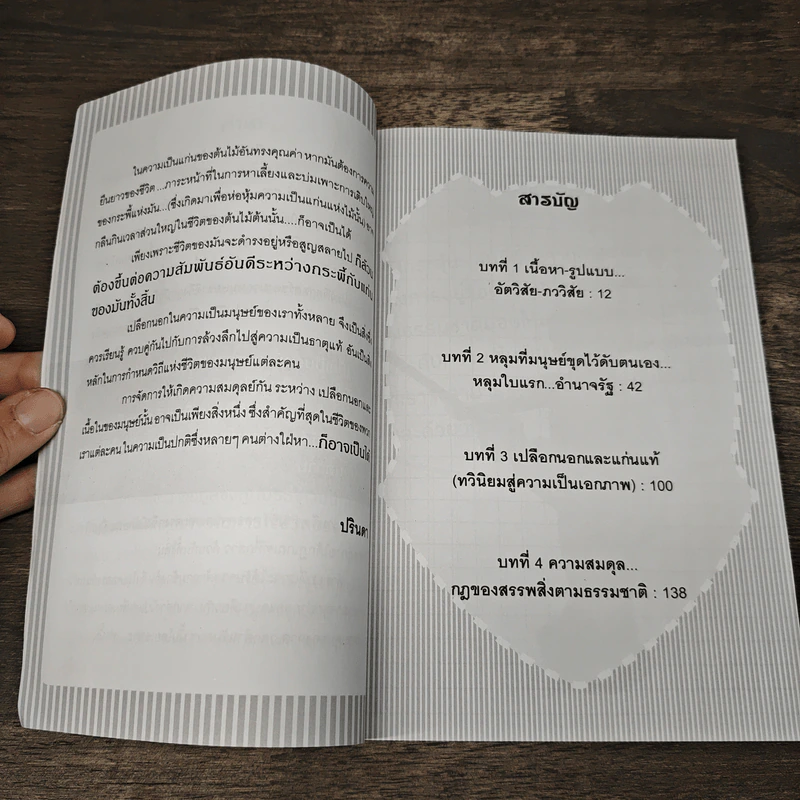 ในความเป็นแก่นของต้นไม้อันทรงคุณค่า หากมันต้องการความ
ยืนยาวของชีวิต...ภาระหน้าที่ในการหาเลี้ยงและบ่มเพาะการเติบใหญ่
ของกระพี้แห่งมัน...(ซึ่งเกิดมาเพื่อห่อหุ้มความเป็นแก่นแห่งไม้นั้น)
กลืนกินเวลาส่วนใหญ่ในชีวิตของต้นไม้ต้นนั้น....ก็อาจเป็นได้
เพียงเพราะชีวิตของมันจะดำรงอยู่หรือสูญสลายไป ก็ล้วน
ต้องขึ้นต่อความสัมพันธ์อันดีระหว่างกระพี้กับแก่น
ของมันทั้งสิ้น
เปลือกนอกในความเป็นมนุษย์ของเราทั้งหลาย จึงเป็นสิ่งที่
ควรเรียนรู้ ควบคู่กันไปกับการล้วงลึกไปสู่ความเป็นธาตุแท้ อันเป็น
หลักในการกำหนดวิถีแห่งชีวิตของมนุษย์แต่ละคน
การจัดการให้เกิดความสมดุลย์กัน ระหว่าง เปลือกนอกและ
เนื้อในของมนุษย์นั้น อาจเป็นเพียงสิ่งหนึ่ง ซึ่งสำคัญที่สุดในชีวิตของพวก
เราแต่ละคน ในความเป็นปกติซึ่งหลายๆ คนต่างใฝ่หา...ก็อาจเป็นได้
ปรินดา
สารบัญ
บทที่ 1 เนื้อหา-รูปแบบ...
อัตวิสัย-ภววิสัย : 12
บทที่ 2 หลุมที่มนุษย์ขุดไว้ดับตนเอง...
หลุมใบแรก...อำนาจรัฐ : 42
บทที่ 3 เปลือกนอกและแก่นแท้
(ทวินิยมสู่ความเป็นเอกภาพ) : 100
บทที่ 4 ความสมดุล...
กฎของสรรพสิ่งตามธรรมชาติ : 138